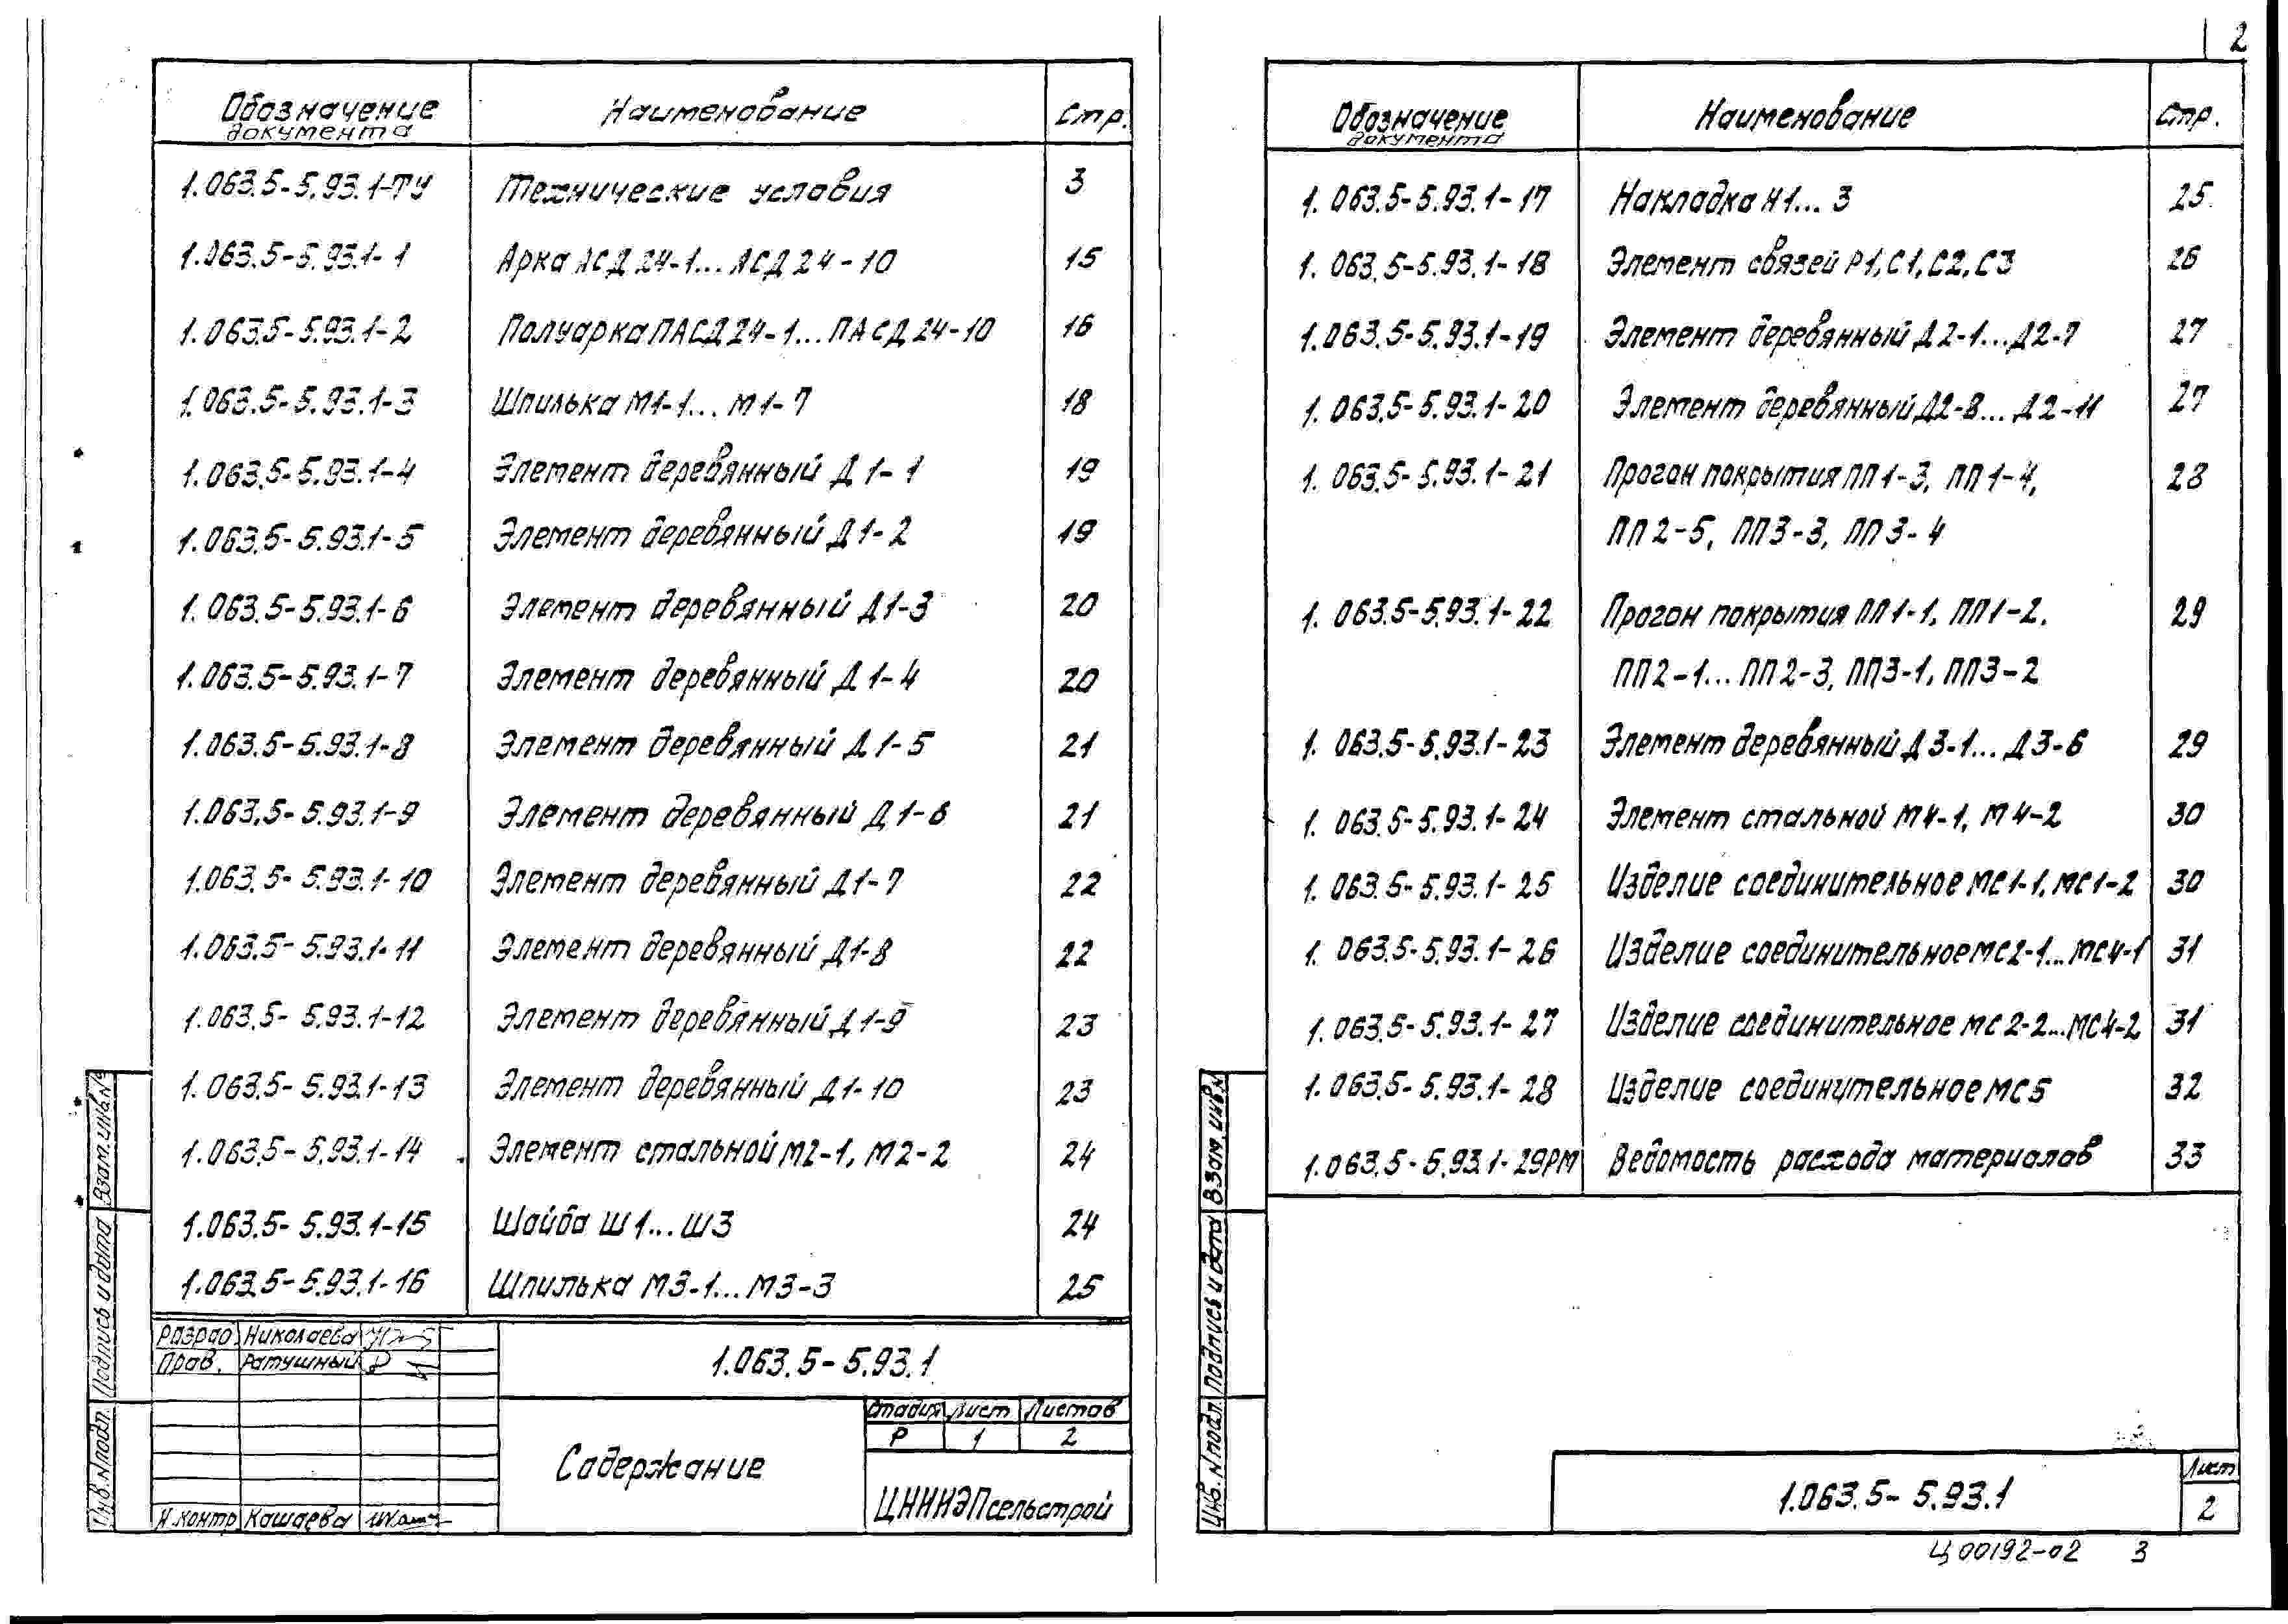 Обозначение документа Наименование Стр.
1.063.5-5.93.1-ТУ Технические условия 3
1.063.5-5.93.1-1 Арка АСД 24-1...АСД 24-10 15
1.063.5-5.93.1-2 Полуарка ПАСД 24-1...ПАСД 24-10 16
1.063.5-5.93.1-3 Шпилька М1-1...М1-7 18
1.063.5-5.93.1-4 Элемент деревянный Д1-1 19
1.063.5-5.93.1-5 Элемент деревянный Д1-2 19
1.063.5-5.93.1-6 Элемент деревянный Д1-3 20
1.063.5-5.93.1-7 Элемент деревянный Д1-4 20
1.063.5-5.93.1-8 Элемент деревянный Д1-5 21
1.063.5-5.93.1-9 Элемент деревянный Д1-6 21
1.063.5-5.93.1-10 Элемент деревянный Д1-7 22
1.063.5-5.93.1-11 Элемент деревянный Д1-8 22
1.063.5-5.93.1-12 Элемент деревянный Д1-9 23
1.063.5-5.93.1-13 Элемент деревянный Д1-10 23
1.063.5-5.93.1-14 Элемент стальной М2-1, М2-2 24
1.063.5-5.93.1-15 Шайба Ш1...Ш3 24
1.063.5-5.93.1-16 Шпилька М3-1...М3-3 25
Разраб. Николаева
Пров. Ратушный
Н.контр Кашаева
1.063.5-5.93.1
Содержание
Стадия Лист Листов
Р 1 2
ЦНИИЭПсельстрой
Взам. инв.№
Подпись и дата
Инв.№подл.
2
Обозначение документа Наименование Стр.
1.063.5-5.93.1-17 Накладка Н1...3 25
1.063.5-5.93.1-18 Элемент связей Р1, С1, С2, С3 26
1.063.5-5.93.1-19 Элемент деревянный Д2-1...Д2-7 27
1.063.5-5.93.1-20 Элемент деревянный Д2-8...Д2-11 27
1.063.5-5.93.1-21 Прогон покрытия ПП1-3, ПП1-4, 28
ПП2-5, ПП3-3, ПП3-4
1.063.5-5.93.1-22 Прогон покрытия ПП1-1, ПП1-2, 29
ПП2-1...ПП2-3, ПП3-1, ПП3-2
1.063.5-5.93.1-23 Элемент деревянный Д3-1...Д3-6 29
1.063.5-5.93.1-24 Элемент стальной М4-1, М4-2 30
1.063.5-5.93.1-25 Изделие соединительное МС1-1, МС1-2 30
1.063.5-5.93.1-26 Изделие соединительное МС2-1...МС4-1 31
1.063.5-5.93.1-27 Изделие соединительное МС2-2...МС4-2 31
1.063.5-5.93.1-28 Изделие соединительное МС5 32
1.063.5-5.93.1-29РМ Ведомость расхода материалов 33
Взам. инв.№
Подпись и дата
Инв.№подл.
1.063.5-5.93.1
Лист
2
Ц00192-02 3